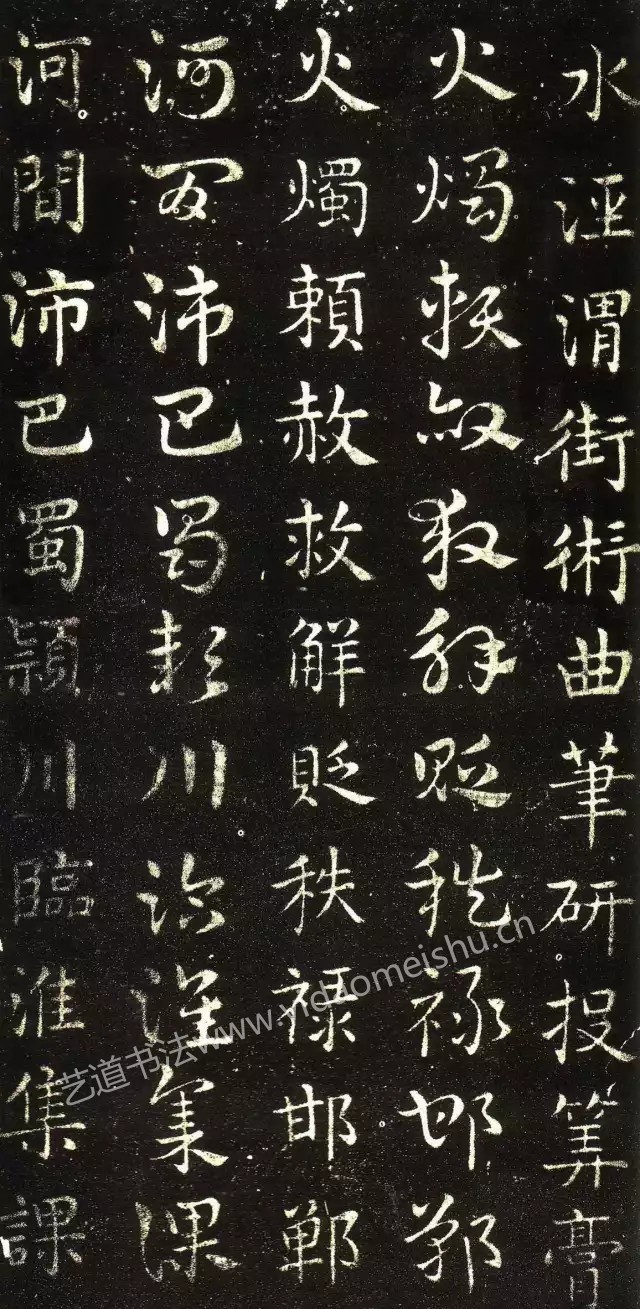 水泾渭街術曲筆研投筭膏
火燭賴赦救解貶秩禄邯鄲
火燭賴赦救解貶秩禄邯鄲
河間沛巴蜀潁川臨淮集課
河間沛巴蜀潁川臨淮集課
艺道书法www.yidaomeishu.cn